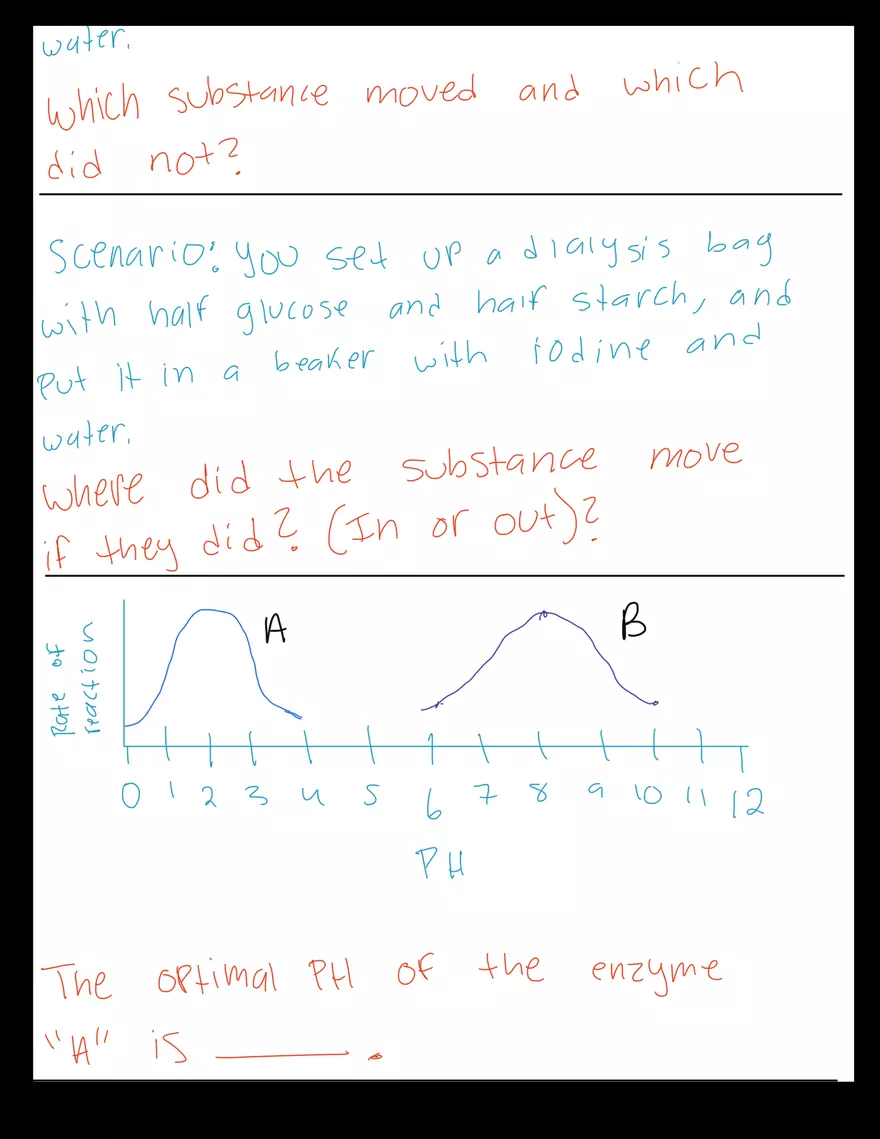 water.
Which substance moved and which
did not?
Scenario: You set up a dialysis bag
with half glucose and half starch, and
Put it in a beaker with iodine and
water.
Where did the substance move
if they did? (In or out)?
A
B
Rate of
reaction
0 1 2 3 4 5 6 7 8 9 10 11 12
PH
The optimal PH of the enzyme
"A" is ______.